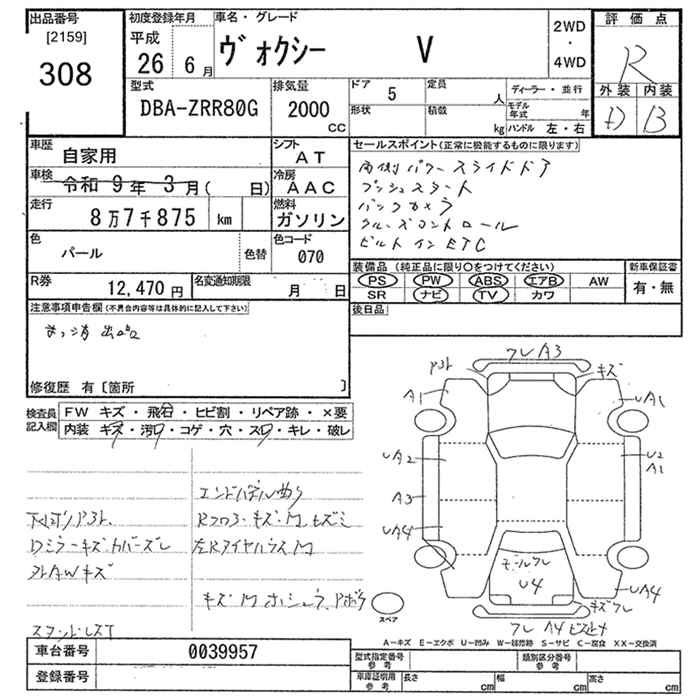 出品番号
[2159]
308
初度登録年月
平成
26 6月
車名・グレード
ヴォクシー V
2WD
・
4WD
評価点
R
外装 内装
D B
型式
DBA-ZRR80G
排気量
2000
CC
ドア
5
形状
定員
人
積載
kg
ディーラー・並行
モデル年式 年
ハンドル 左・右
車歴
自家用
シフト
AT
車検
令和 9年 3月( 日)
冷房
AAC
走行
8万7千875 km
燃料
ガソリン
色
パール
色替
色コード
070
R券
12,470円
名変通知期限
月 日
セールスポイント(正常に機能するものに限ります)
両側パワースライドドア
プッシュスタート
バックカメラ
クルーズコントロール
ビルトインETC
装備品 (純正品に限り○をつけてください)
PS PW ABS エアB AW
SR ナビ TV カワ
新車保証書
有・無
後日品
注意事項申告欄(不具合内容等は具体的に記入して下さい)
まっ消出品
修復歴 有〔箇所 〕
検査員記入欄
FW キズ・飛石・ヒビ割・リペア跡・×要
内装 キズ・汚レ・コゲ・穴・スレ・キレ・破レ
エンドパネル曲り
Dミラーキズ.カバーズレ
外AWキズ
フレA3
キズ
A1
UA1
UA2
U2
A1
A3
UA4
モールフレ
U4
UA4
キズフレ
フレA4
スペア
A-キズ E-エクボ U-凹み W-補修跡 S-サビ C-腐食 XX-交換済
車台番号 0039957
登録番号
型式指定番号
参考
類別区分番号
参考
車庫証明用
参考
長さ cm
幅 cm
高さ cm